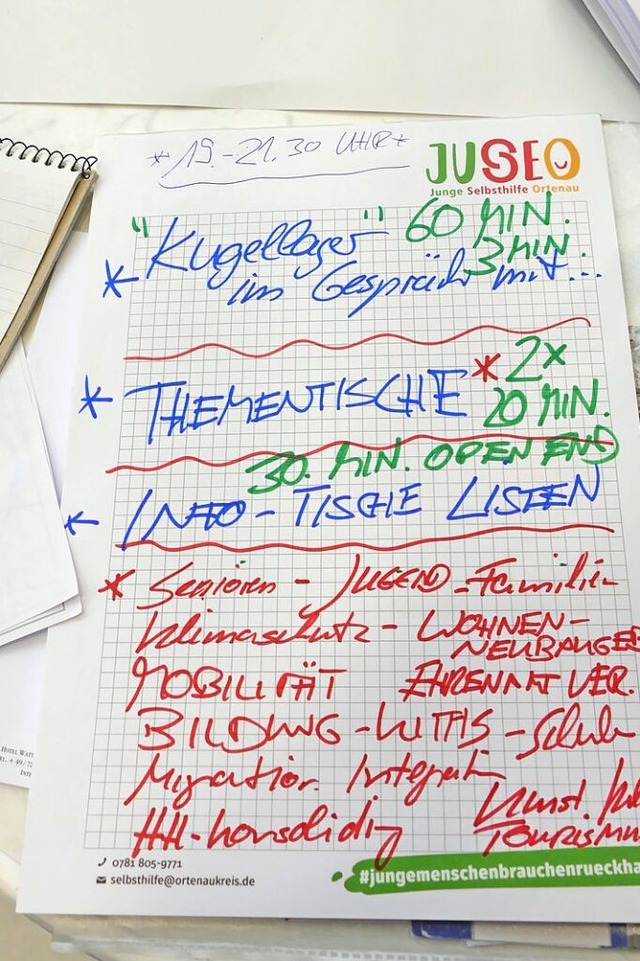 *19.-21.30 UHR*
JUSEO
Junge Selbsthilfe Ortenau
"Kugellager" 60 MIN.
3 MIN.
* im Gespräch mit...
* THEMENTISCHE * 2x
20 MIN.
30. MIN. OPEN END
* INFO-TISCHE LISTEN
* Senioren - JUGEND - Familie
Klimaschutz - WOHNEN-
NEUBAUGEB
MOBILITÄT EHRENAMT VER.
BILDUNG - KITAS - Schule
Migration Integrati
Kunst
HH-Konsolidig TOURISMU
0781 805-9771
selbsthilfe@ortenaukreis.de
#jungemenschenbrauchenrueckha
HOTEL WATT